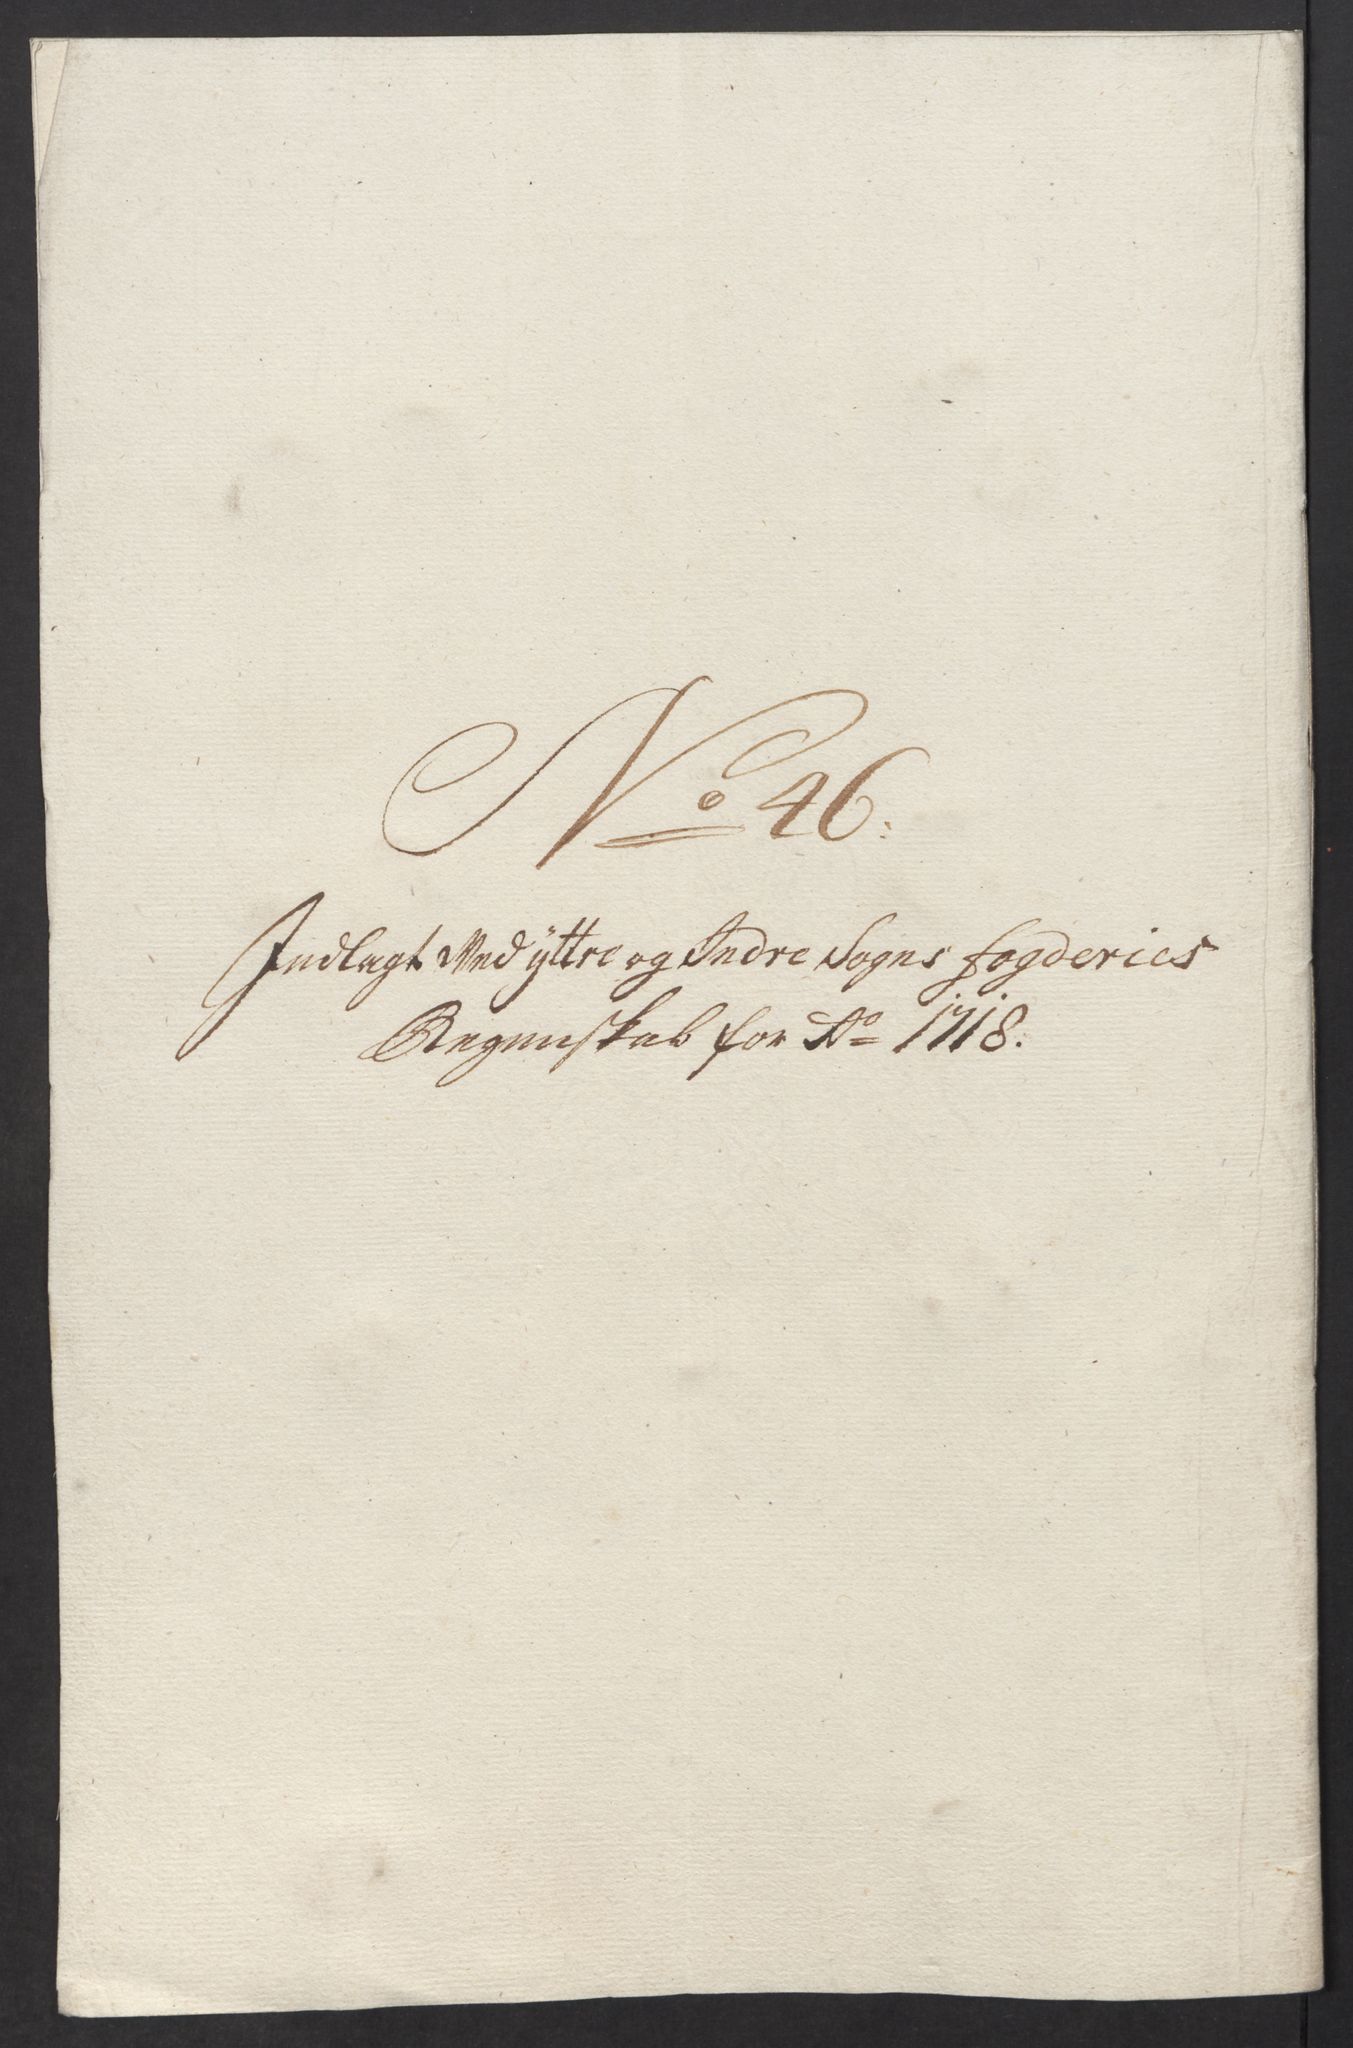 No 46:
Indlagt Med ÿttre og Indre Sogns fogderies
Regenskab for Ao 1718: